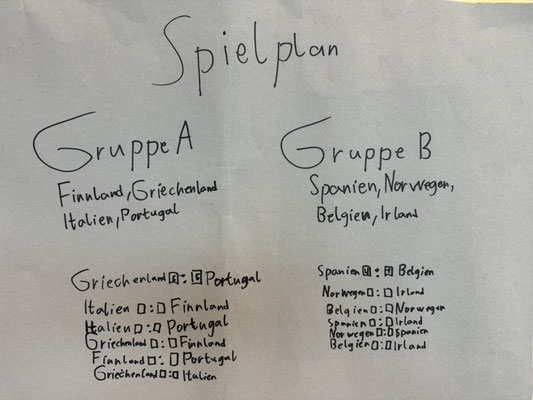 Spielplan
Gruppe A
Finnland, Griechenland
Italien, Portugal
Griechenland : Portugal
Italien : Finnland
Italien : Portugal
Griechenland : Finnland
Finnland : Portugal
Griechenland : Italien
Gruppe B
Spanien, Norwegen,
Belgien, Irland
Spanien : Belgien
Norwegen : Irland
Belgien : Norwegen
Spanien : Irland
Norwegen : Spanien
Belgien : Irland